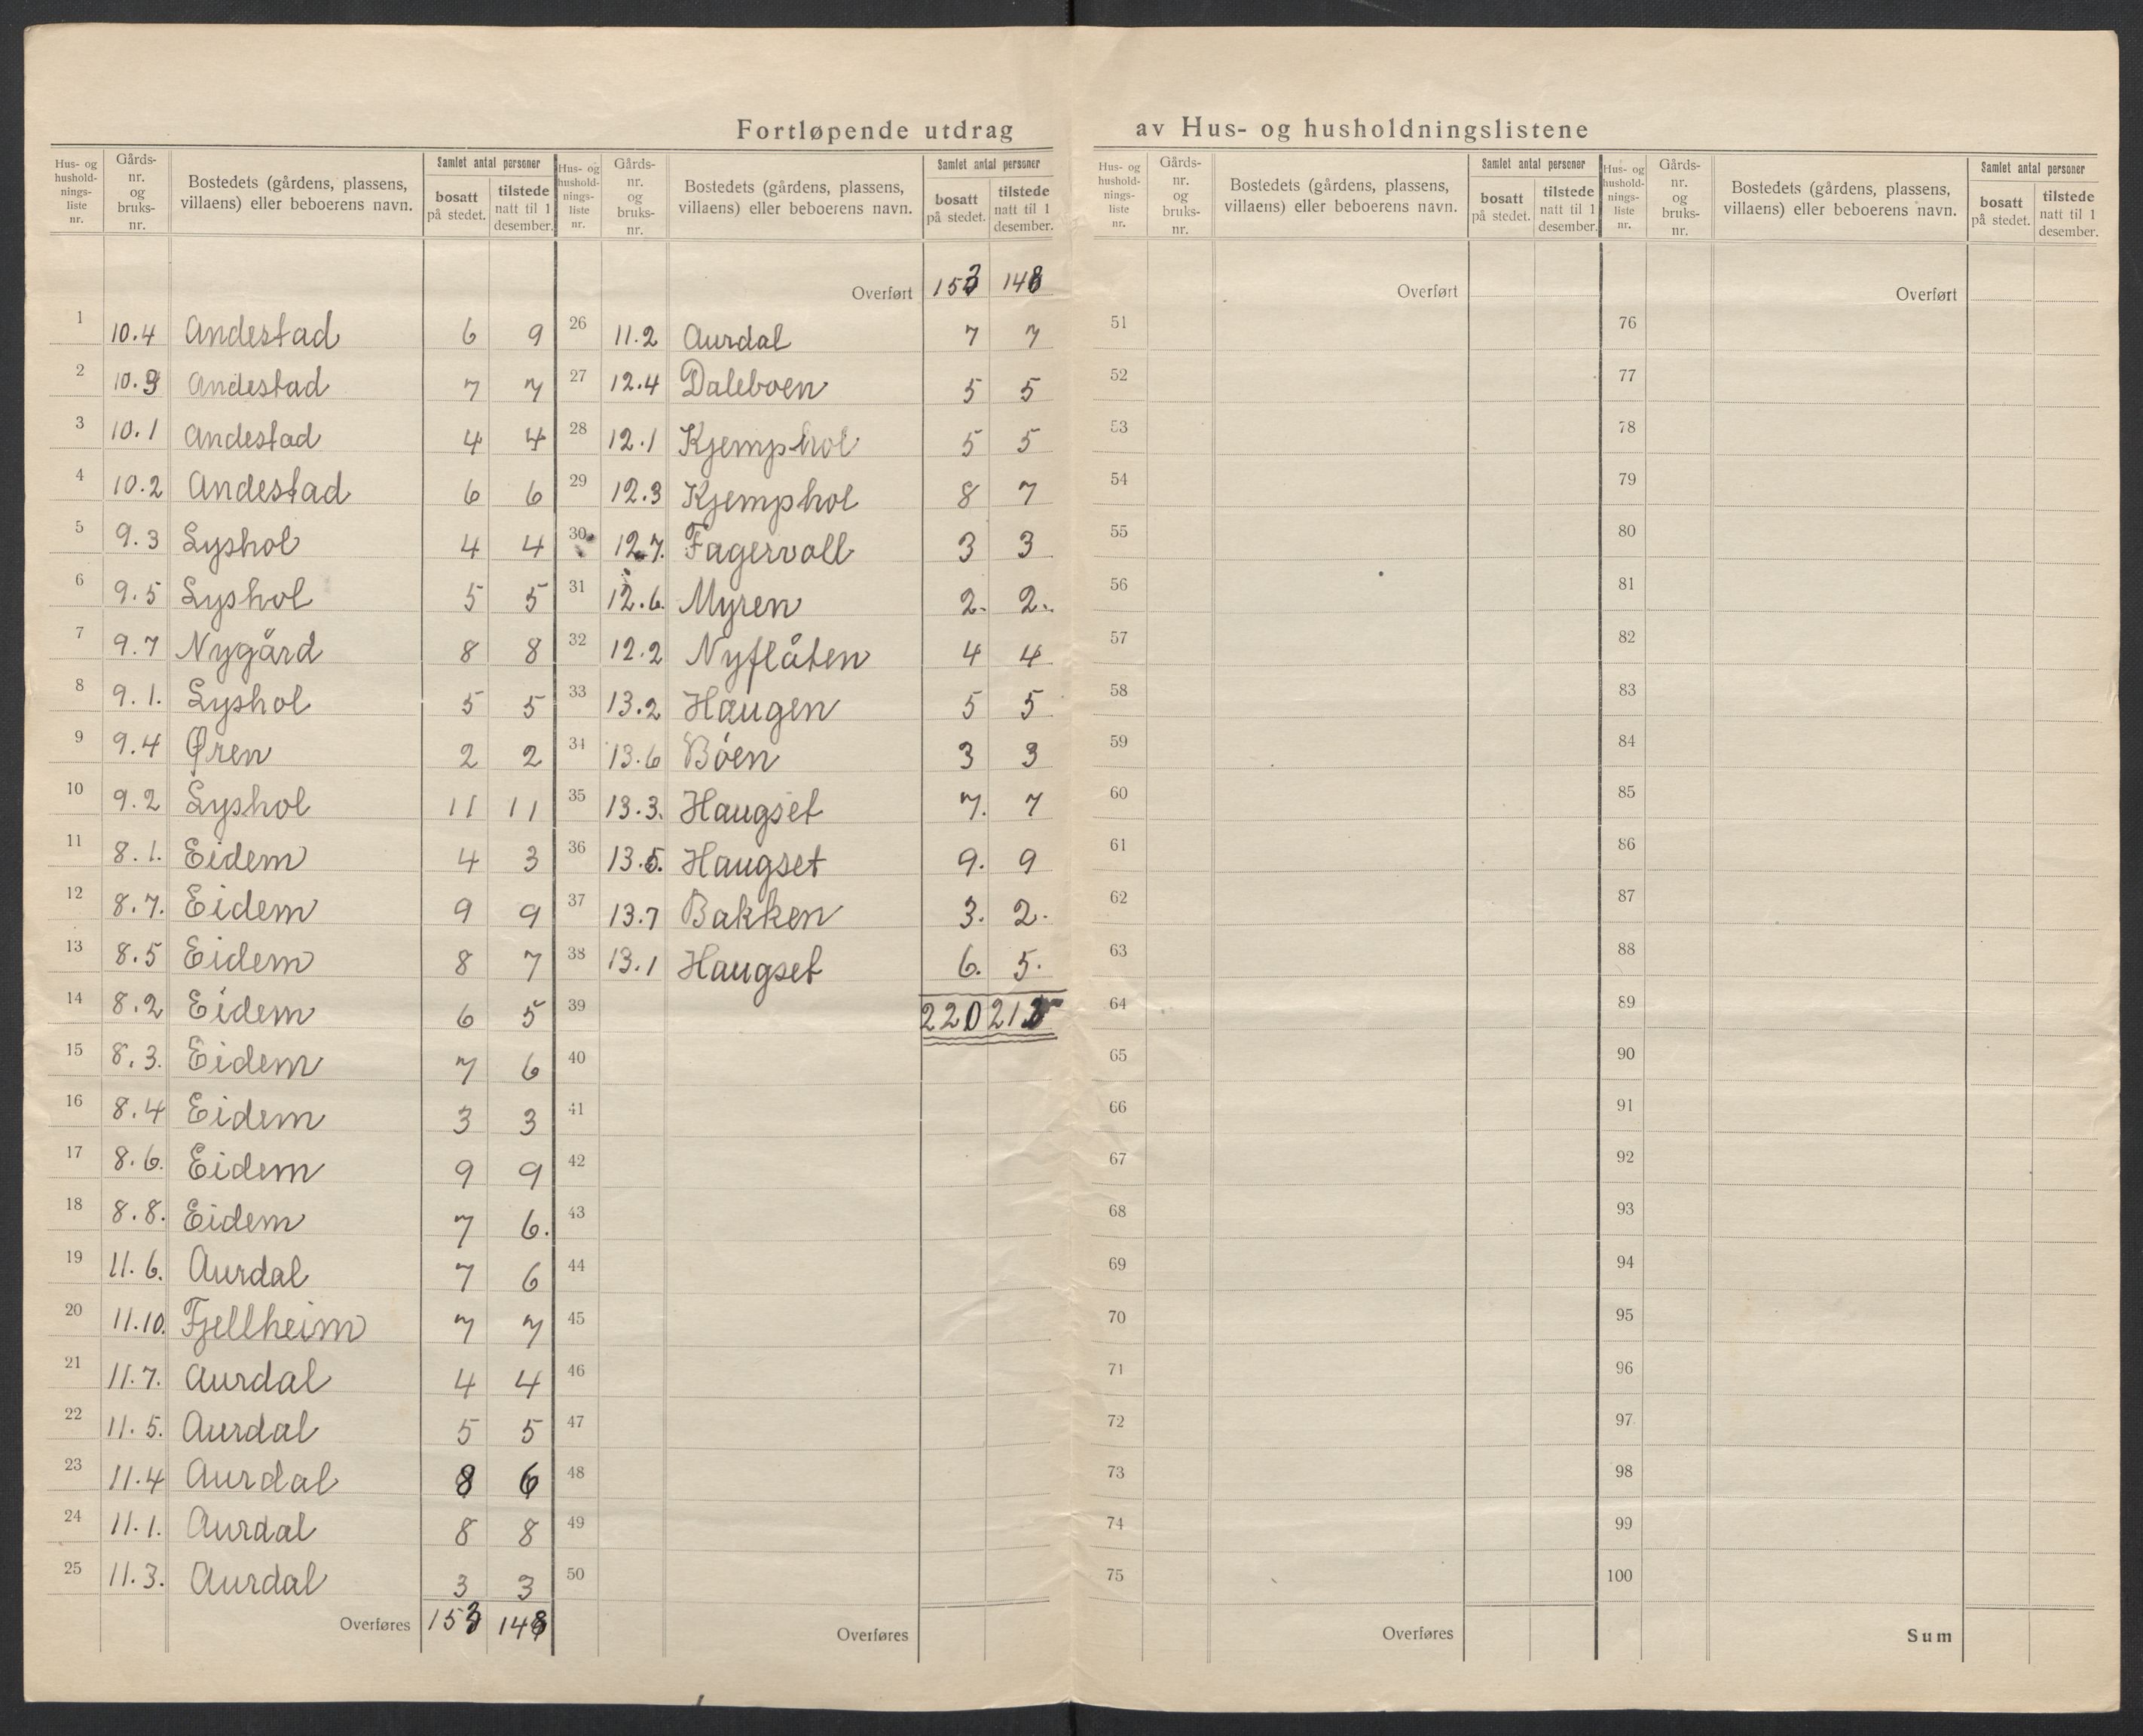 Fortløpende utdrag av Hus- og husholdningslistene
Hus- og hushold-nings-liste nr. | Gårds-nr. og bruks-nr. | Bostedets (gårdens, plassens, villaens) eller beboerens navn. | Samlet antal personer | bosatt på stedet. | tilstede natt til 1 desember.
1 10.4 Andestad 6 9
2 10.3 Andestad 7 7
3 10.1 Andestad 4 4
4 10.2 Andestad 6 6
5 9.3 Lyshol 4 4
6 9.5 Lyshol 5 5
7 9.7 Nygård 8 8
8 9.1. Lyshol 5 5
9 9.4 Øren 2 2
10 9.2 Lyshol 11 11
11 8.1. Eidem 4 3
12 8.7. Eidem 9 9
13 8.5 Eidem 8 7
14 8.2 Eidem 6 5
15 8.3. Eidem 7 6
16 8.4 Eidem 3 3
17 8.6. Eidem 9 9
18 8.8. Eidem 7 6.
19 11.6. Aurdal 7 6
20 11.10. Fjellheim 7 7
21 11.7. Aurdal 4 4
22 11.5. Aurdal 5 5
23 11.4 Aurdal 8 6
24 11.1. Aurdal 8 8
25 11.3. Aurdal 3 3
Overføres 153 148
Hus- og hushold-nings-liste nr. | Gårds-nr. og bruks-nr. | Bostedets (gårdens, plassens, villaens) eller beboerens navn. | Samlet antal personer | bosatt på stedet. | tilstede natt til 1 desember.
Overført 153 148
26 11.2 Aurdal 7 7
27 12.4 Daleboen 5 5
28 12.1 Kjemphol 5 5
29 12.3 Kjemphol 8 7
30 12.7. Fagervoll 3 3
31 12.6. Myren 2. 2.
32 12.2 Nyflåten 4 4
33 13.2 Haugen 5 5
34 13.6 Bøen 3 3
35 13.3. Haugset 7. 7
36 13.5. Haugset 9. 9
37 13.7 Bakken 3. 2.
38 13.1 Haugset 6. 5.
39 220
40
41
42
43
44
45
46
47
48
49
50
Overføres
Hus- og hushold-nings-liste nr. | Gårds-nr. og bruks-nr. | Bostedets (gårdens, plassens, villaens) eller beboerens navn. | Samlet antal personer | bosatt på stedet. | tilstede natt til 1 desember.
Overført
51
52
53
54
55
56
57
58
59
60
61
62
63
64
65
66
67
68
69
70
71
72
73
74
75
Overføres
Hus- og hushold-nings-liste nr. | Gårds-nr. og bruks-nr. | Bostedets (gårdens, plassens, villaens) eller beboerens navn. | Samlet antal personer | bosatt på stedet. | tilstede natt til 1 desember.
Overført
76
77
78
79
80
81
82
83
84
85
86
87
88
89
90
91
92
93
94
95
96
97
98
99
100
Sum